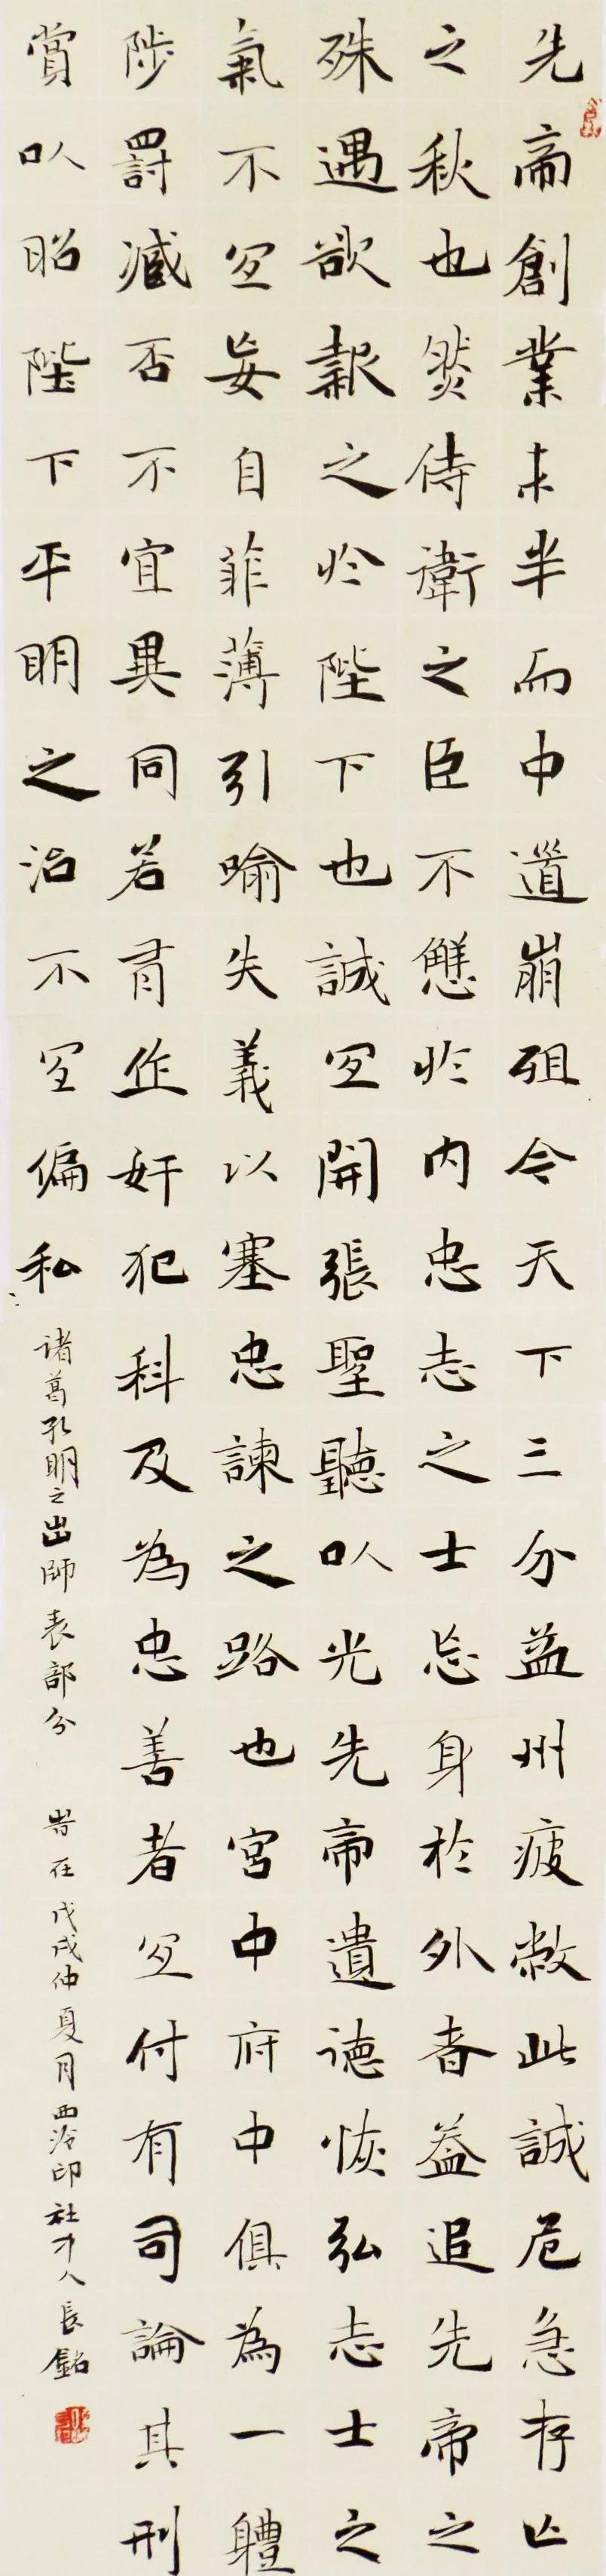 先帝創業未半而中道崩殂今天下三分益州疲敝此誠危急存亡
之秋也然侍衛之臣不懈於内忠志之士忘身於外者益追先帝之
殊遇欲報之於陛下也誠宜開張聖聽以光先帝遺德恢弘志士之
氣不宜妄自菲薄引喻失義以塞忠諫之路也宮中府中俱為一軆
陟罰臧否不宜異同若有作奸犯科及為忠善者宜付有司論其刑
賞以昭陛下平明之治不宜偏私
諸葛孔明之出師表部分 旹在戊戌仲夏月西泠印社人長銘